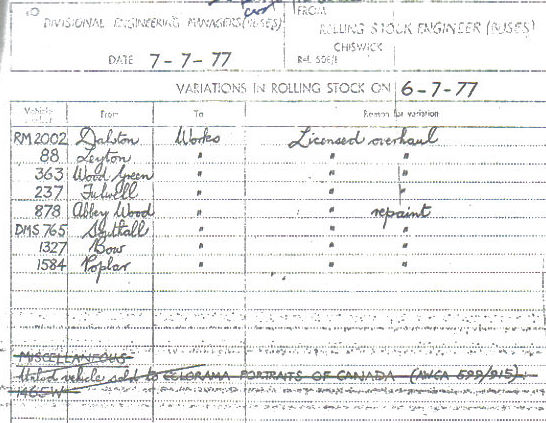 TO
DIVISIONAL ENGINEERING MANAGERS (BUSES)
FROM
ROLLING STOCK ENGINEER (BUSES)
CHISWICK
DATE 7-7-77
VARIATIONS IN ROLLING STOCK ON 6-7-77
Vehicle From To Reason for variation
RM2002 Dalston Works Licensed overhaul
88 Leyton " " "
363 Wood Green " " "
237 Fulwell " " "
878 Abbey Wood " " repaint
DMS 765 Southall " " "
1327 Bow " " "
1584 Poplar " " "
MISCELLANEOUS
vehicle sold to COLORAMA PORTRAITS OF CANADA (AWCA 599/915)
1465W